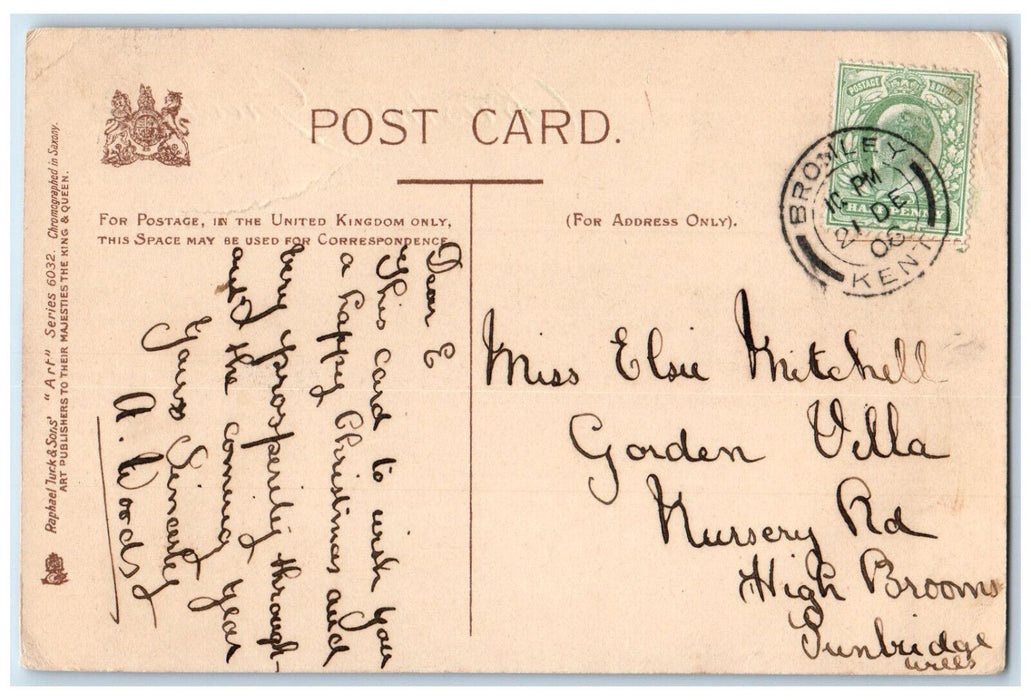 POST CARD.
FOR POSTAGE, IN THE UNITED KINGDOM ONLY,
THIS SPACE MAY BE USED FOR CORRESPONDENCE
(FOR ADDRESS ONLY).
Raphael Tuck & Sons' "Art" Series 6032. Chromographed in Saxony.
ART PUBLISHERS TO THEIR MAJESTIES THE KING & QUEEN.
POSTAGE & REVENUE
HALFPENNY
BROMLEY
PM
21 DE
KENT
Dear E
This card to wish you
a happy Christmas and
very prosperity through-
out the coming year
Yours Sincerely
A. Woods
Miss Elsie Mitchell
Gordon Villa
Nursery Rd
High Brooms
Tunbridge
Wells